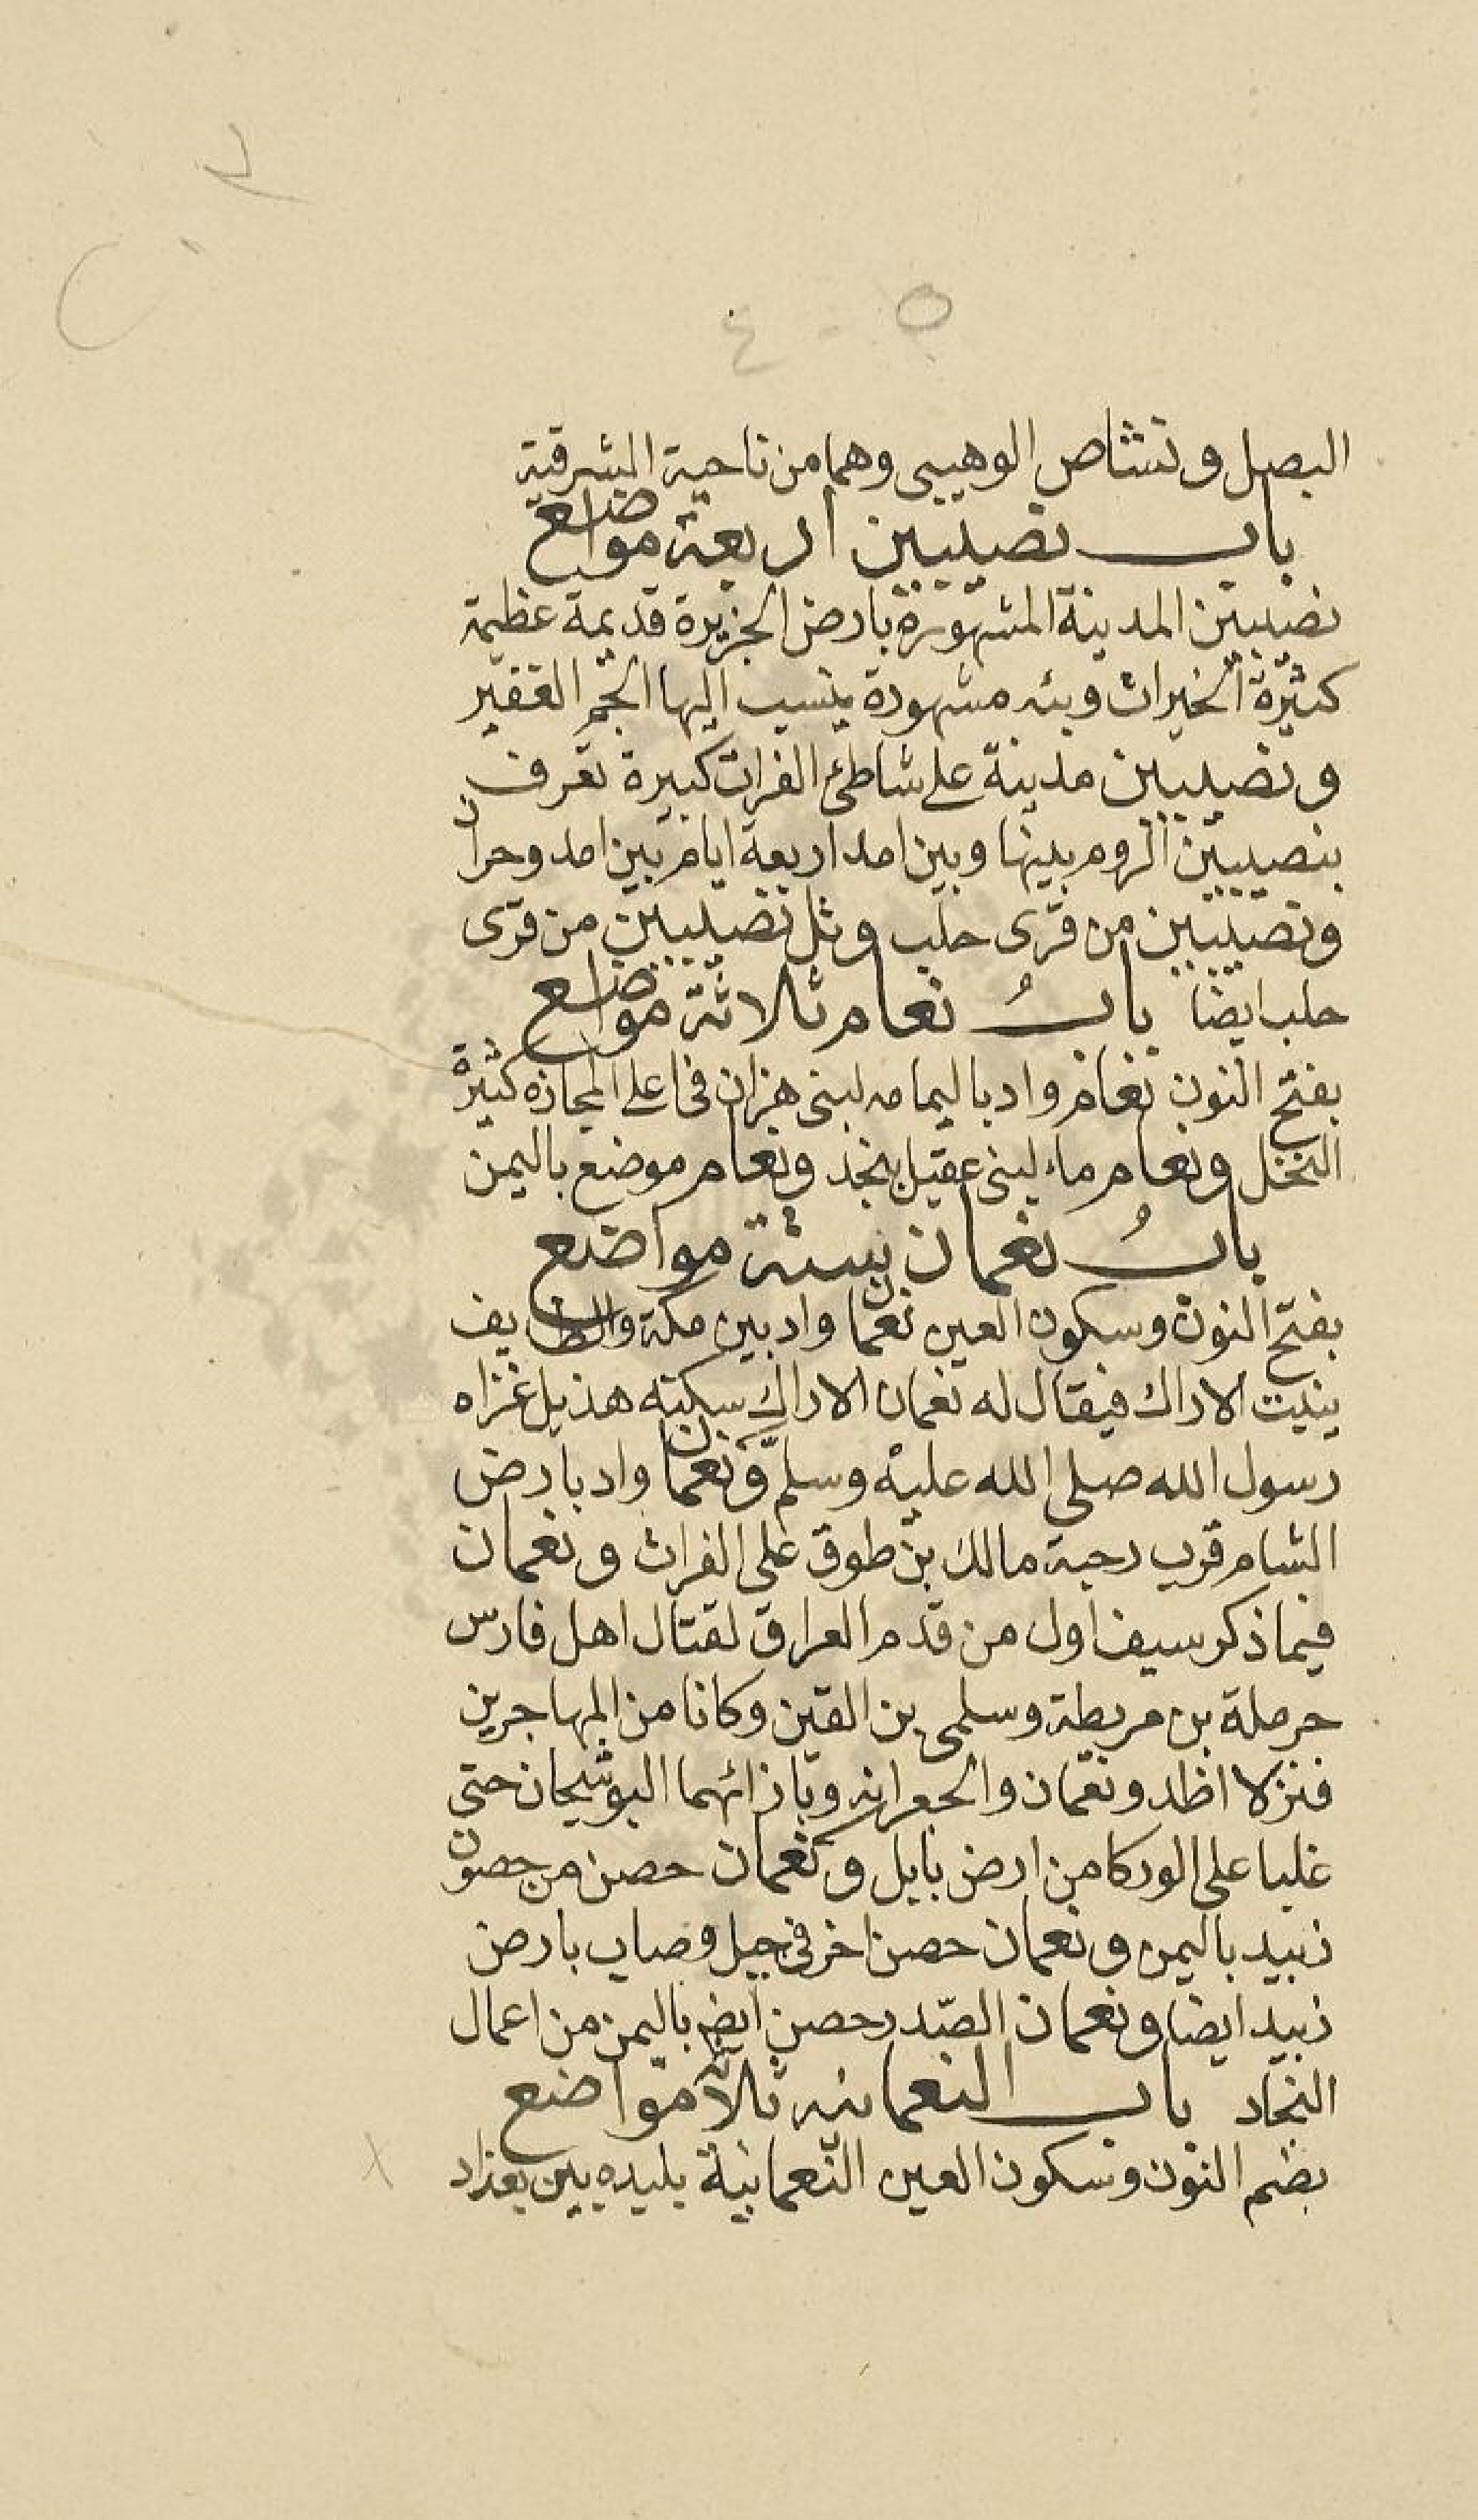 ٤٠٥
البصل ونشاص الوهيبى وهما من ناحية الشرقية
باب نصيبين اربعة مواضع
نصيبين المدينة المشهورة بارض الجزيرة قديمة عظيمة
كثيرة الخيرات وبئه مشهورة ينسب اليها الجم الغفير
ونصيبين مدينة على شاطئ الفرات كبيرة تعرف
بنصيبين الروم بينها وبين امد اربعة ايام بين امد وحران
ونصيبين من قرى حلب وتل نصيبين من قرى
حلب ايضا باب نعام ثلاثة مواضع
بفتح النون نعام واد باليمامه لبنى هزان فى اعلى المجازه كثيرة
النخل ونعام ماء لبنى عقيل بنجد ونعام موضع باليمن
باب نعمان ستة مواضع
بفتح النون وسكون العين نعمان واد بين مكة والطايف
ينبت الاراك فيقال له نعمان الاراك سكنته هذيل غزاه
رسول الله صلى الله عليه وسلم ونعمان واد بارض
الشام قرب رحبة مالك بن طوق على الفرات ونعمان
فيما ذكر سيف اول من قدم العراق لقتال اهل فارس
حرملة بن مريطة وسلمى بن القين وكانا من المهاجرين
فنزلا اظد ونعمان والجعرانه وبازائهما البوشجان حتى
غلبا على الوركا من ارض بابل ونعمان حصن من حصون
زبيد باليمن ونعمان حصن اخر فى جبل وصاب بارض
زبيد ايضا ونعمان الصدر حصن ايض باليمن من اعمال
النجاد باب النعمانيه ثلاثة مواضع
بضم النون وسكون العين النعمانية بليده بين بغداد